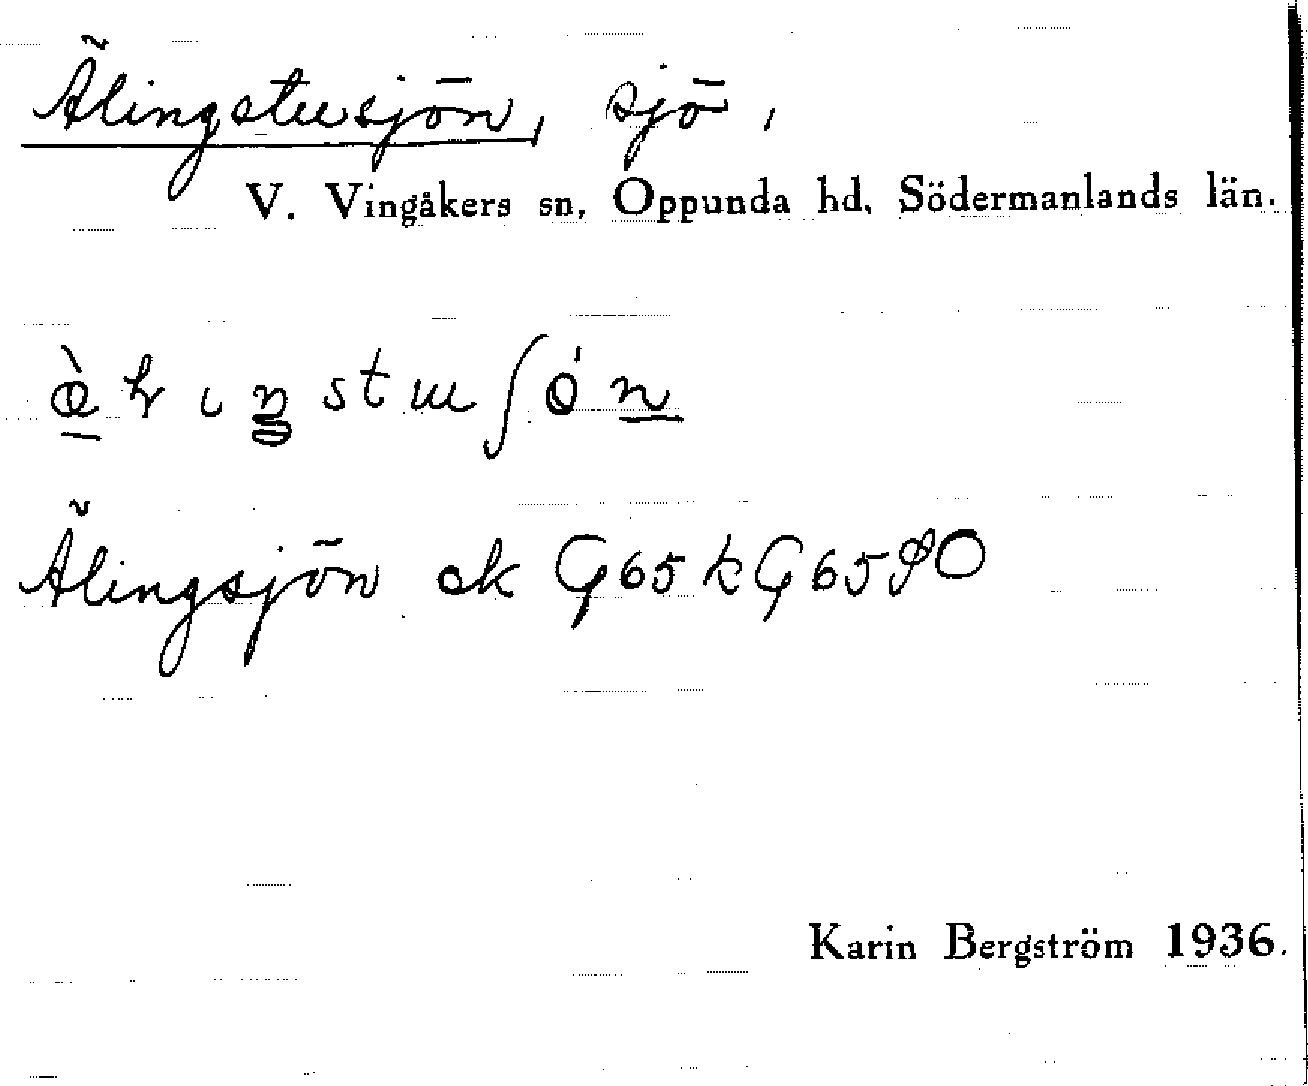 Älingstusjön, sjö,
V. Vingåkers sn, Oppunda hd, Södermanlands län.
Älingsjön ek G65 k G65 SO
Karin Bergström 1936.